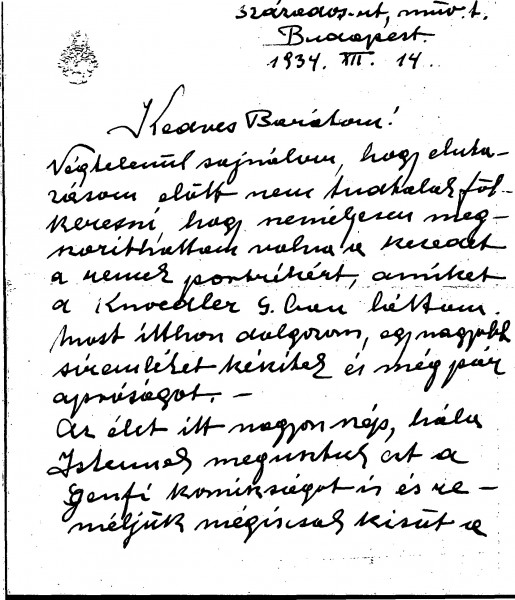 Százados-út, műv. t.
Budapest.
1934. XII. 14.
Kedves Barátom!
Végtelenül sajnálom, hogy eluta-
zásom előtt nem tudtalak föl-
keresni, hogy személyesen meg-
szoríthattam volna a kezedet
a remek portrékért, amiket
a Knoedler G.ban láttam.
Most itthon dolgozom, egy nagyobb
síremléket készítek és még pár
apróságot. –
Az élet itt nagyon szép, hála
Istennek megusztuk ezt a
genfi komikságot is és re-
méljük mégiscsak kisüt a